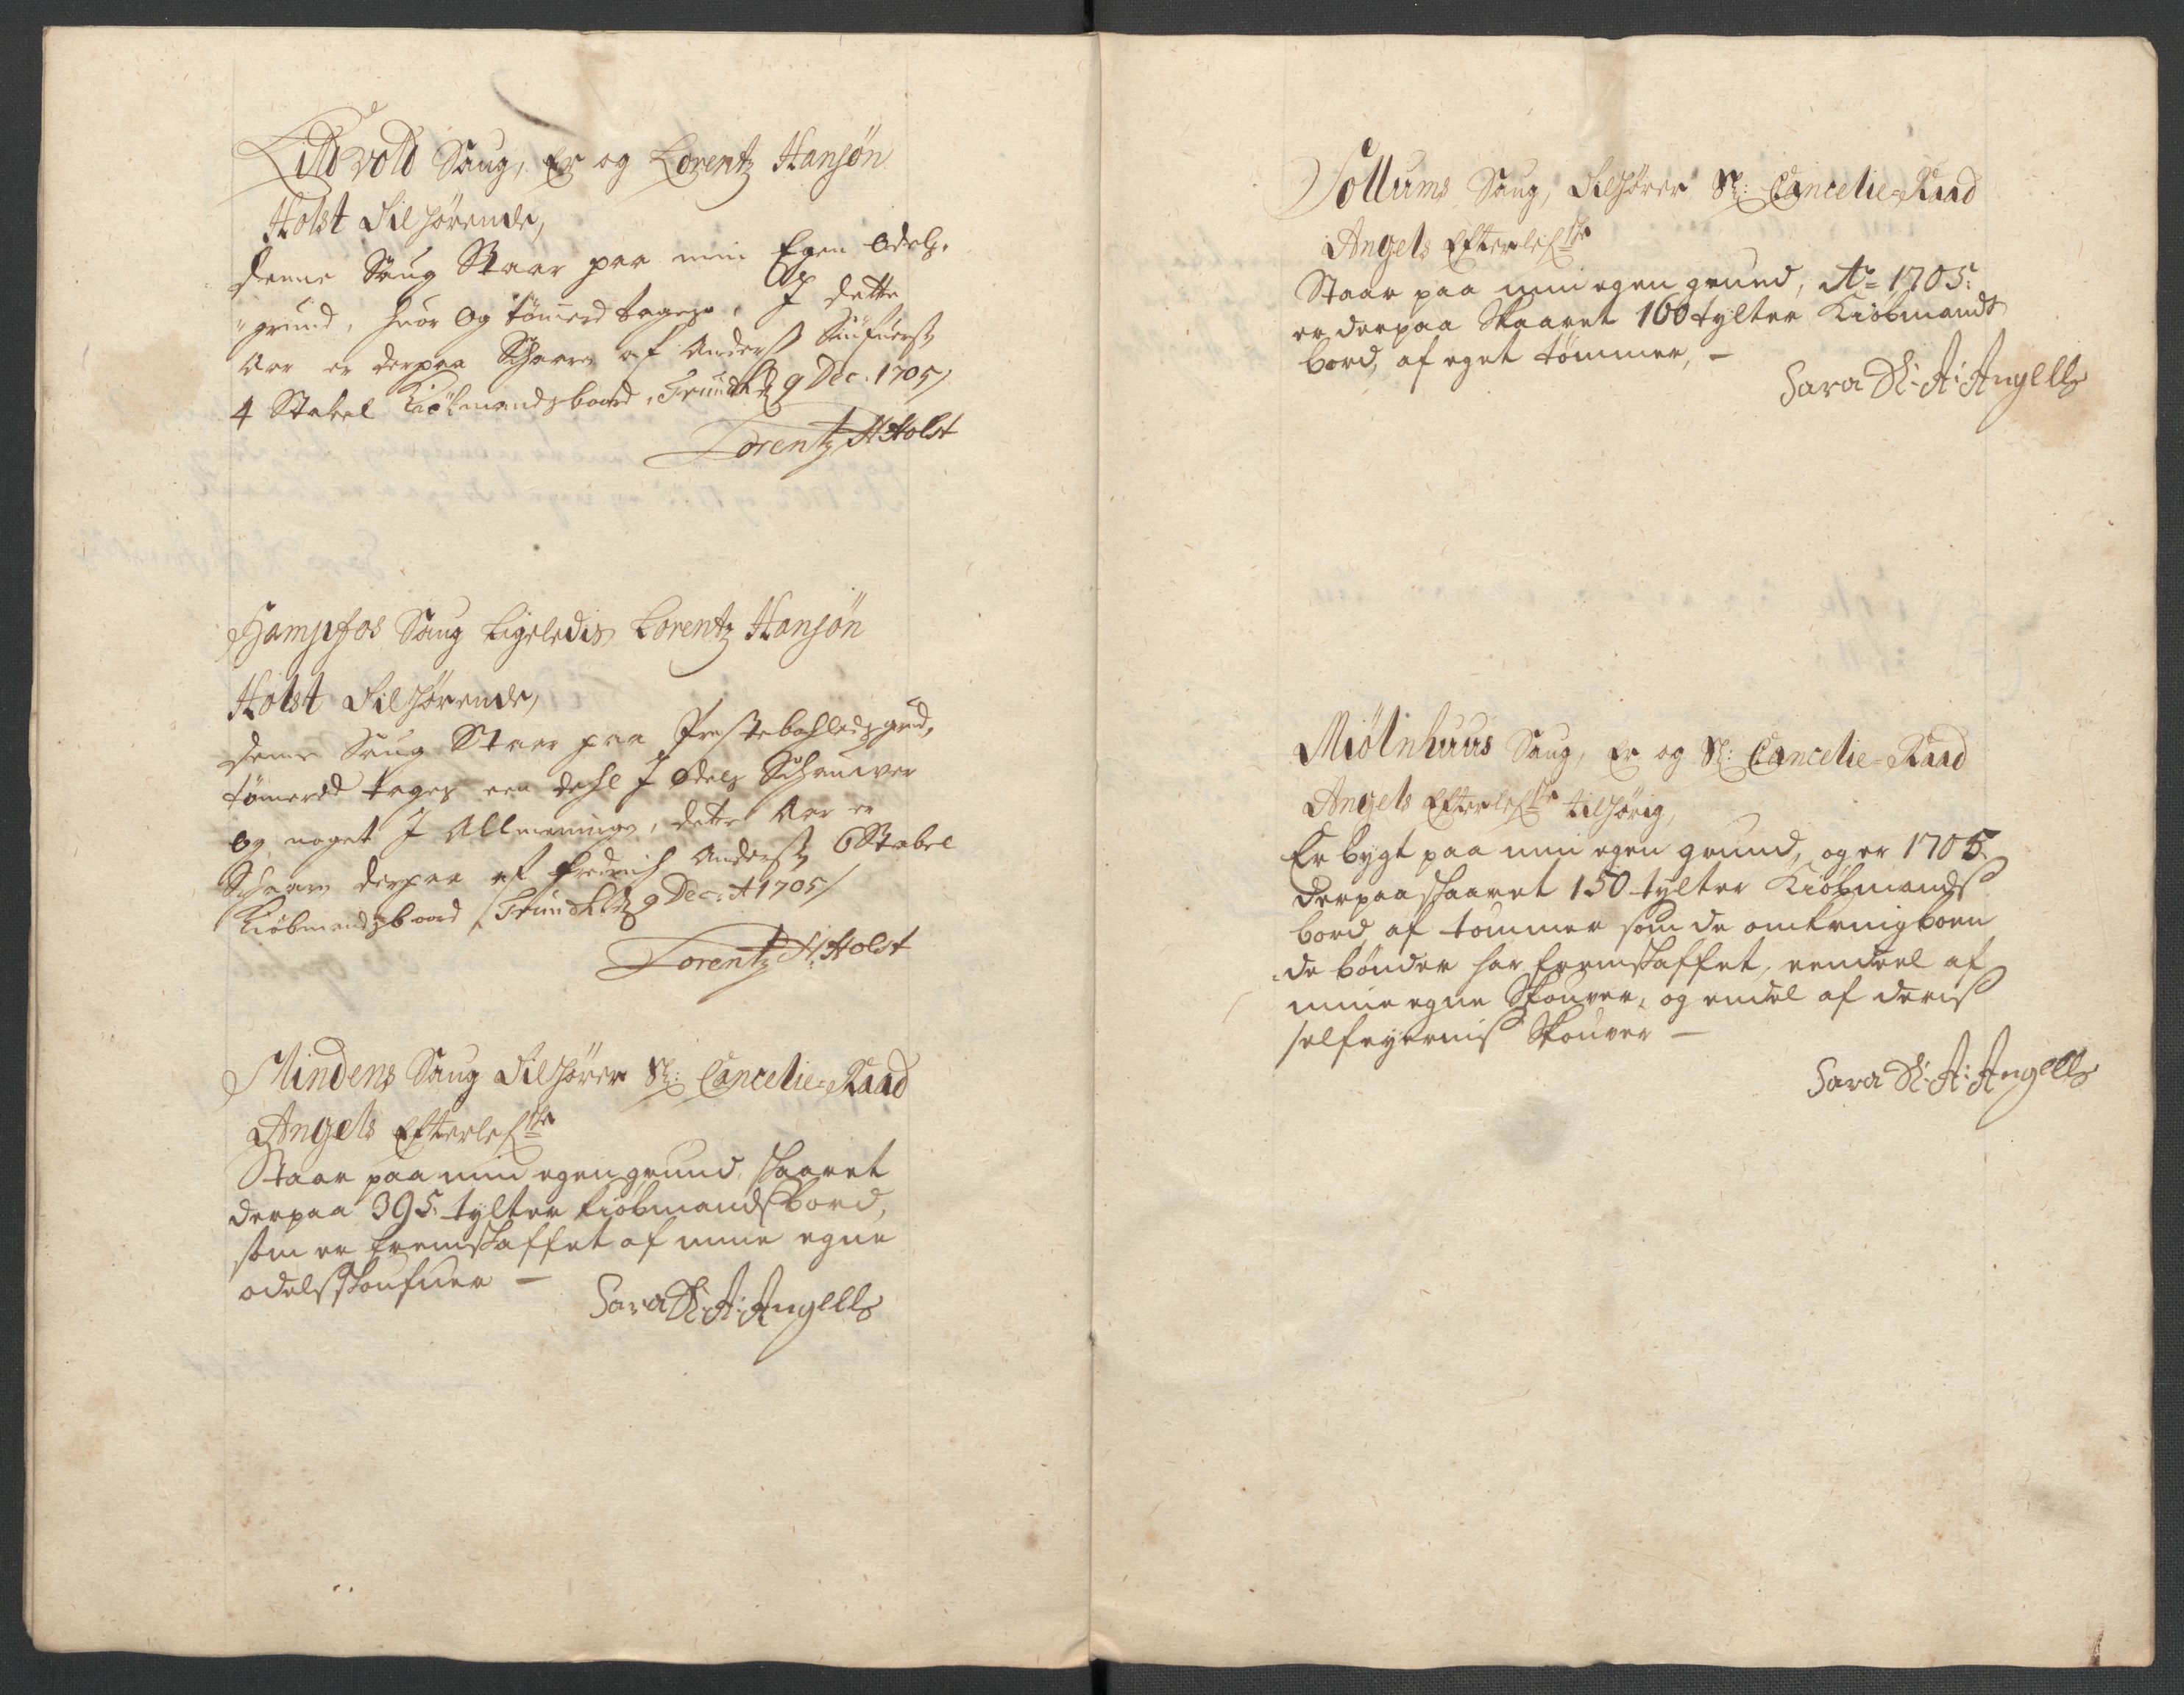 Lidvold Saug, Er og Lorentz Hansøn
Holst Tilhørende,
denne Saug Staar paa min Egen Odels
grund, huor Og tömered tages, I dette
Aar er derpaa Schaare af Anderß
4 Stabel Kiöbmandsboord, Trundh: d 9 Dec: 1705/
Lorentz H Holst
Hampfos Saug Ligeledis Lorentz Hansøn
Holst Tilhørende,
denne Saug Staar paa Prestebohledsgrund,
tömered tages een dehl I Odels Schauwer
Og noget I Allmeninge, dette Aar er
Schaaren derpaa af Fredrich Anderß 6 Stabel
Kiöbmandsboord, Trundh: d 9 Dec: A 1705/
Lorentz H: Holst
Mindens Saug Tilhører Sl: Cancelie-Raad
Angels Efterlefste
Staar paa min egen grund, skaaret
derpaa 395 tylter kiöbmandsbord,
som er fremskaffet af mine egne
odelsskoufuer —
Sara Sl: A: Angells
Sollums Saug, Tilhører Sl: Cancelie-Raad
Angels Efterlefste
Staar paa min egen grund, Ao 1705:
er derpaa Skaaret 160 tylter Kiöbmands
bord, af eget tömmer, —
Sara Sl: A: Angells
Miölnhuus Saug, Er og Sl: Cancelie-Raad
Angels Efterlefste tilhörig,
Er bygt paa min egen grund, og er 1705.
derpaa skaaret 150 tylter Kiöbmands
bord, af tømmer som de omkringboen
de bønder har fremskaffet, eendeel af
mine egne Skouver, og endel af deris
selfeyernis Skouver —
Sara Sl: A: Angells